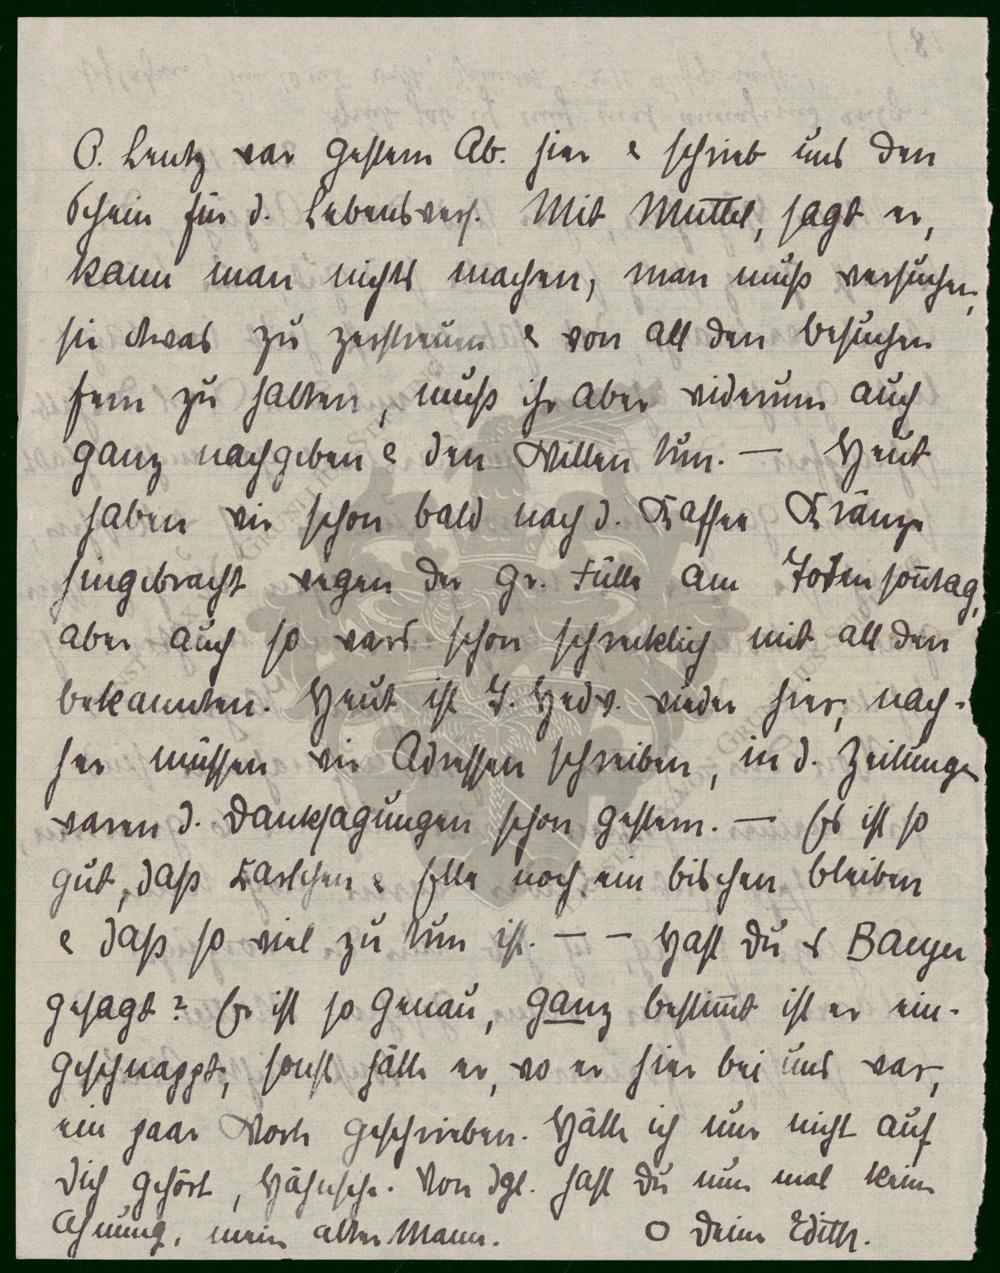 O. Lentz war gestern Ab. hier & schrieb uns den
Schein für d. Lebensvers. Mit Muttel, sagt er,
kann man nichts machen, man muß versuchen,
sie etwas zu zerstreuen & von all den Besuchen
fern zu halten, muß ihr aber wiederum auch
ganz nachgeben & den Willen tun. — Heut
haben wir schon bald nach d. Kaffee Kränze
hingebracht wegen der gr. Fülle am Totensonntag,
aber auch so wars schon schrecklich mit all den
bekannten. Heut ist T. Hedw. wieder hier, nach-
her müssen wir Adressen schreiben, in d. Zeitungen
waren d. Danksagungen schon gestern. — Es ist so
gut, daß Karlchen & Elle noch ein bischen bleiben
& daß so viel zu tun ist. — — Hast Du es Baeyer
gesagt? Er ist so genau, ganz bestimmt ist er ein-
geschnappt, sonst hätte er, wo er hier bei uns war,
ein paar Worte geschrieben. Hätte ich nur nicht auf
Dich gehört, Hähnsche. Von dgl. hast Du nun mal kein
Ahnung, mein alter Mann. O Deine Edith.